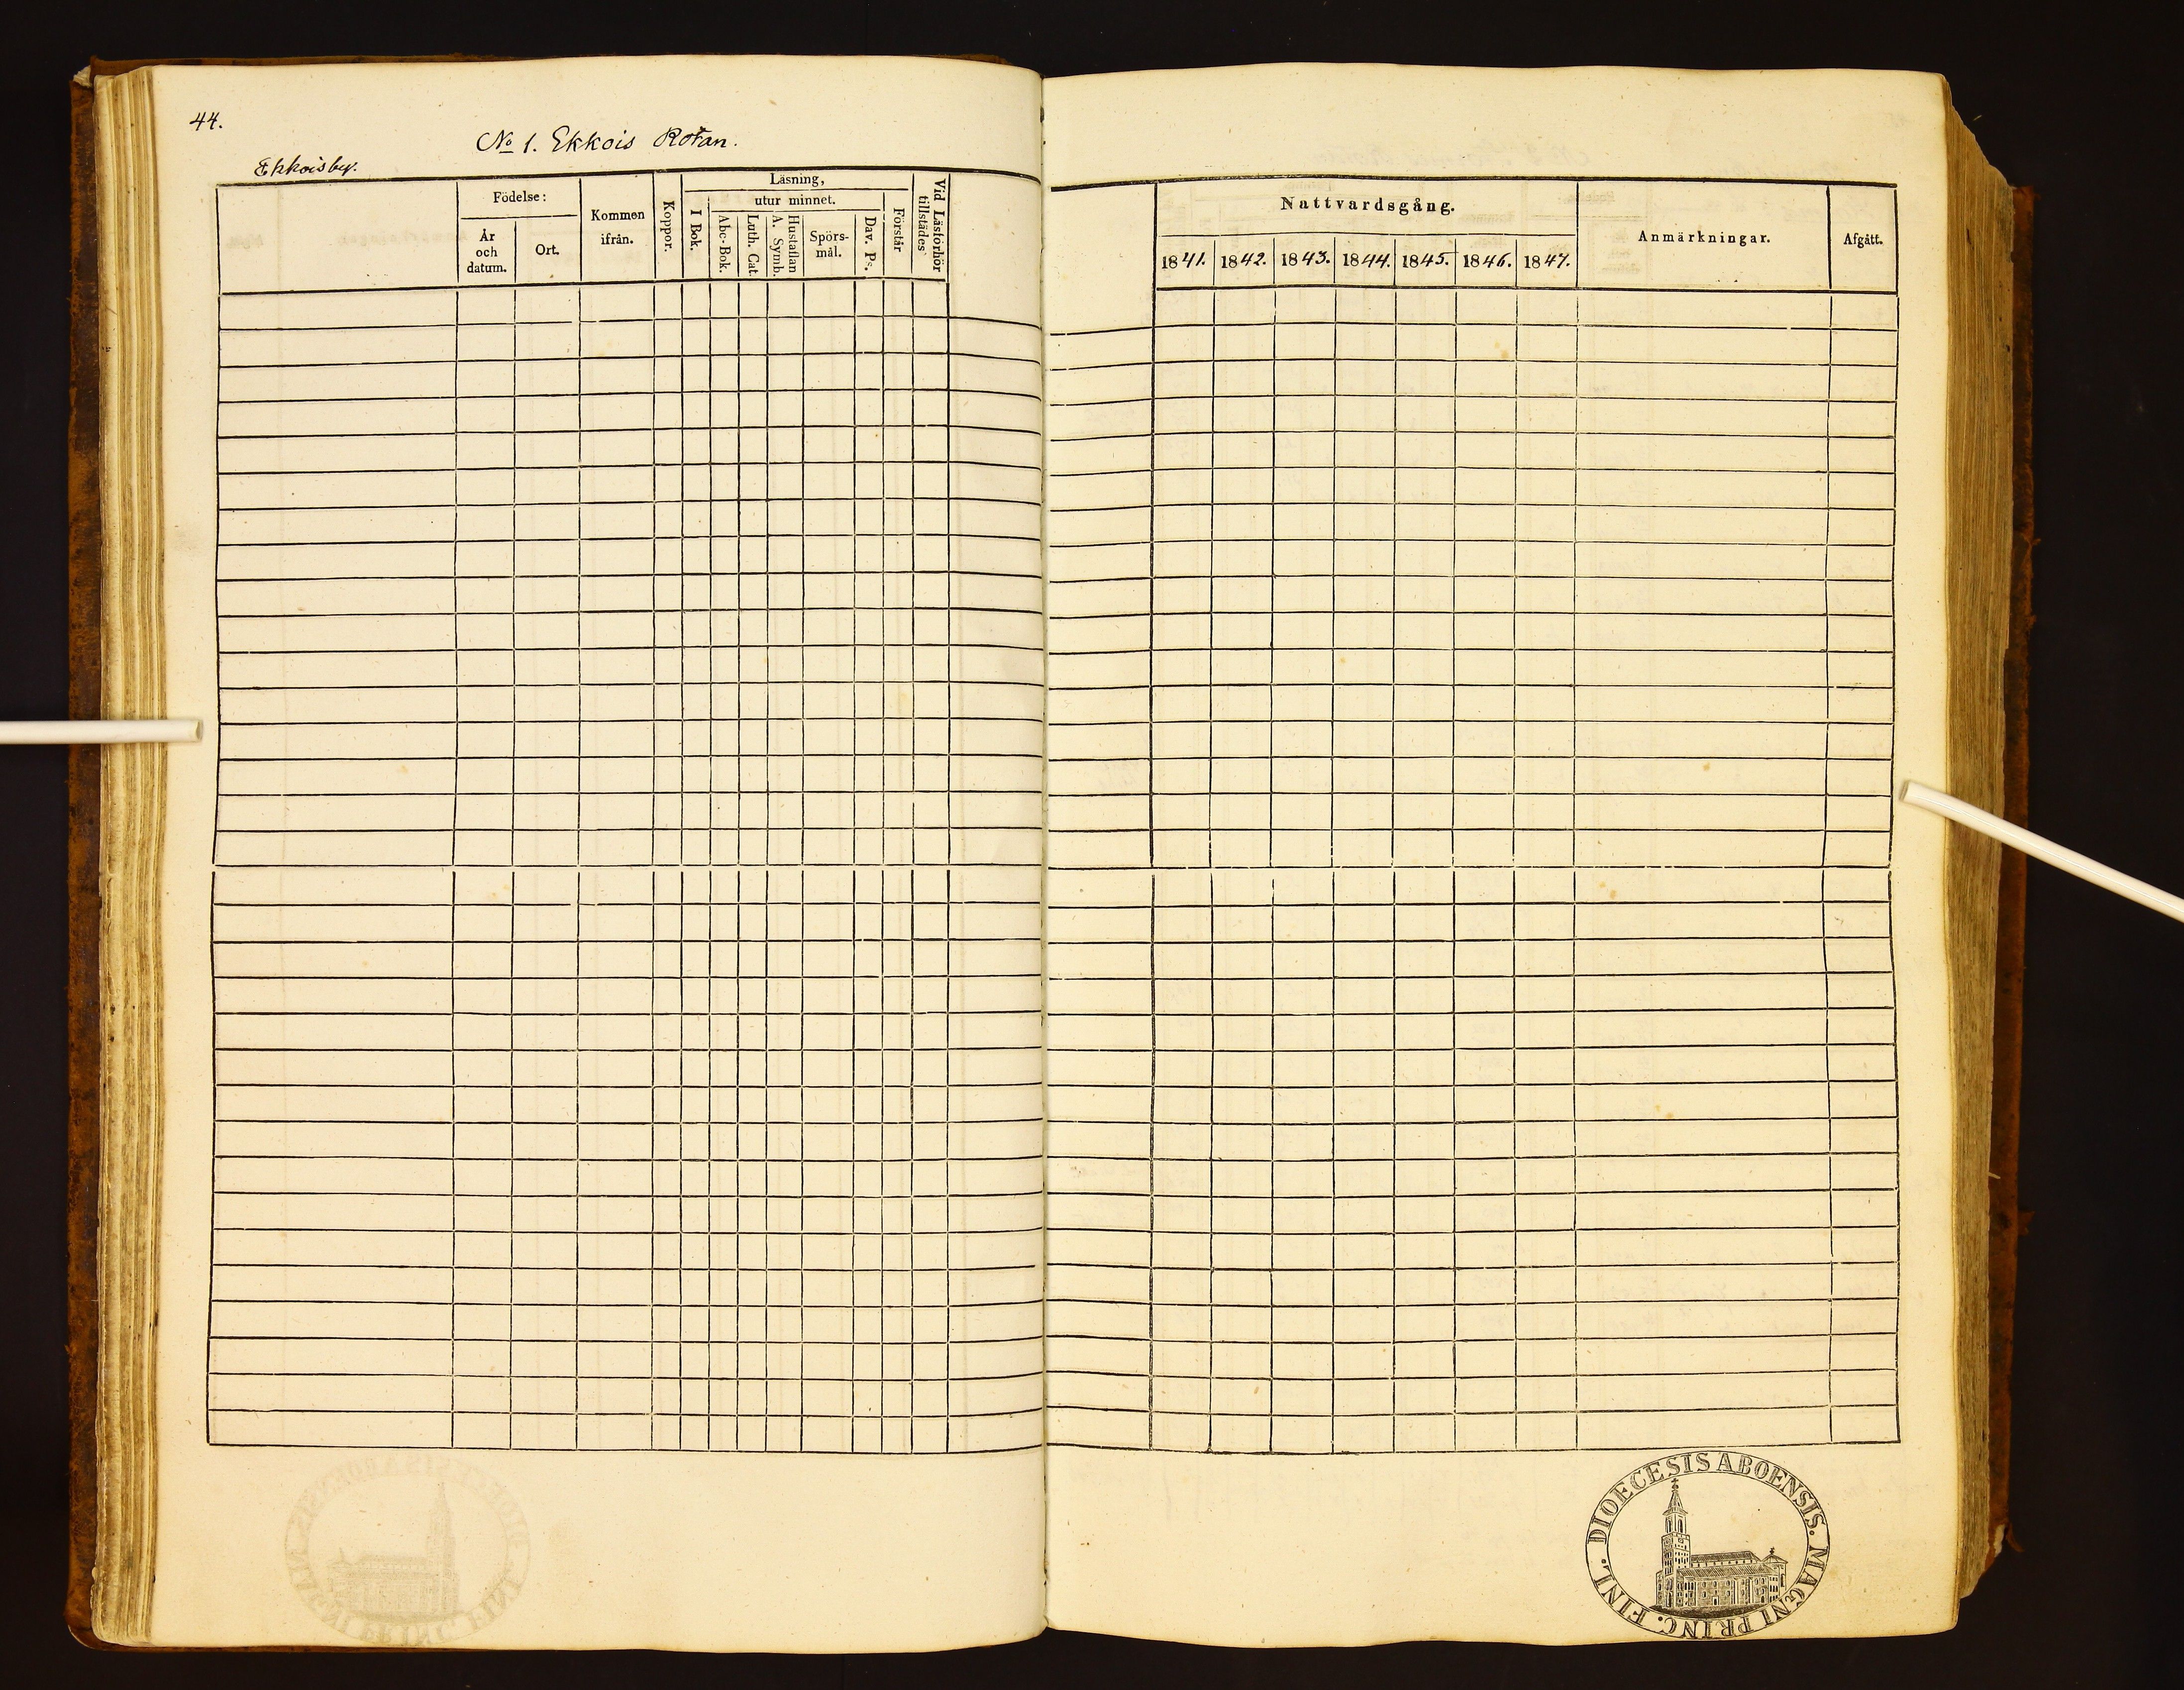 44.
No 1. Ekkois Rotan.
Ekkoisby.
Födelse:
År
och
datum.
Ort.
Kommen
ifrån.
Koppor.
Läsning,
I Bok.
utur minnet.
Abc-Bok.
Luth. Cat.
A. Symb.
Hustaflan
Spörs-
mål.
Dav. Ps.
Förstår
Vid Läsförhör
tillstädes
Nattvardsgång.
1841. 1842. 1843. 1844. 1845. 1846. 1847.
Anmärkningar.
Afgått.
DIOECESIS ABOENSIS. MAGNI PRINC. FINL.